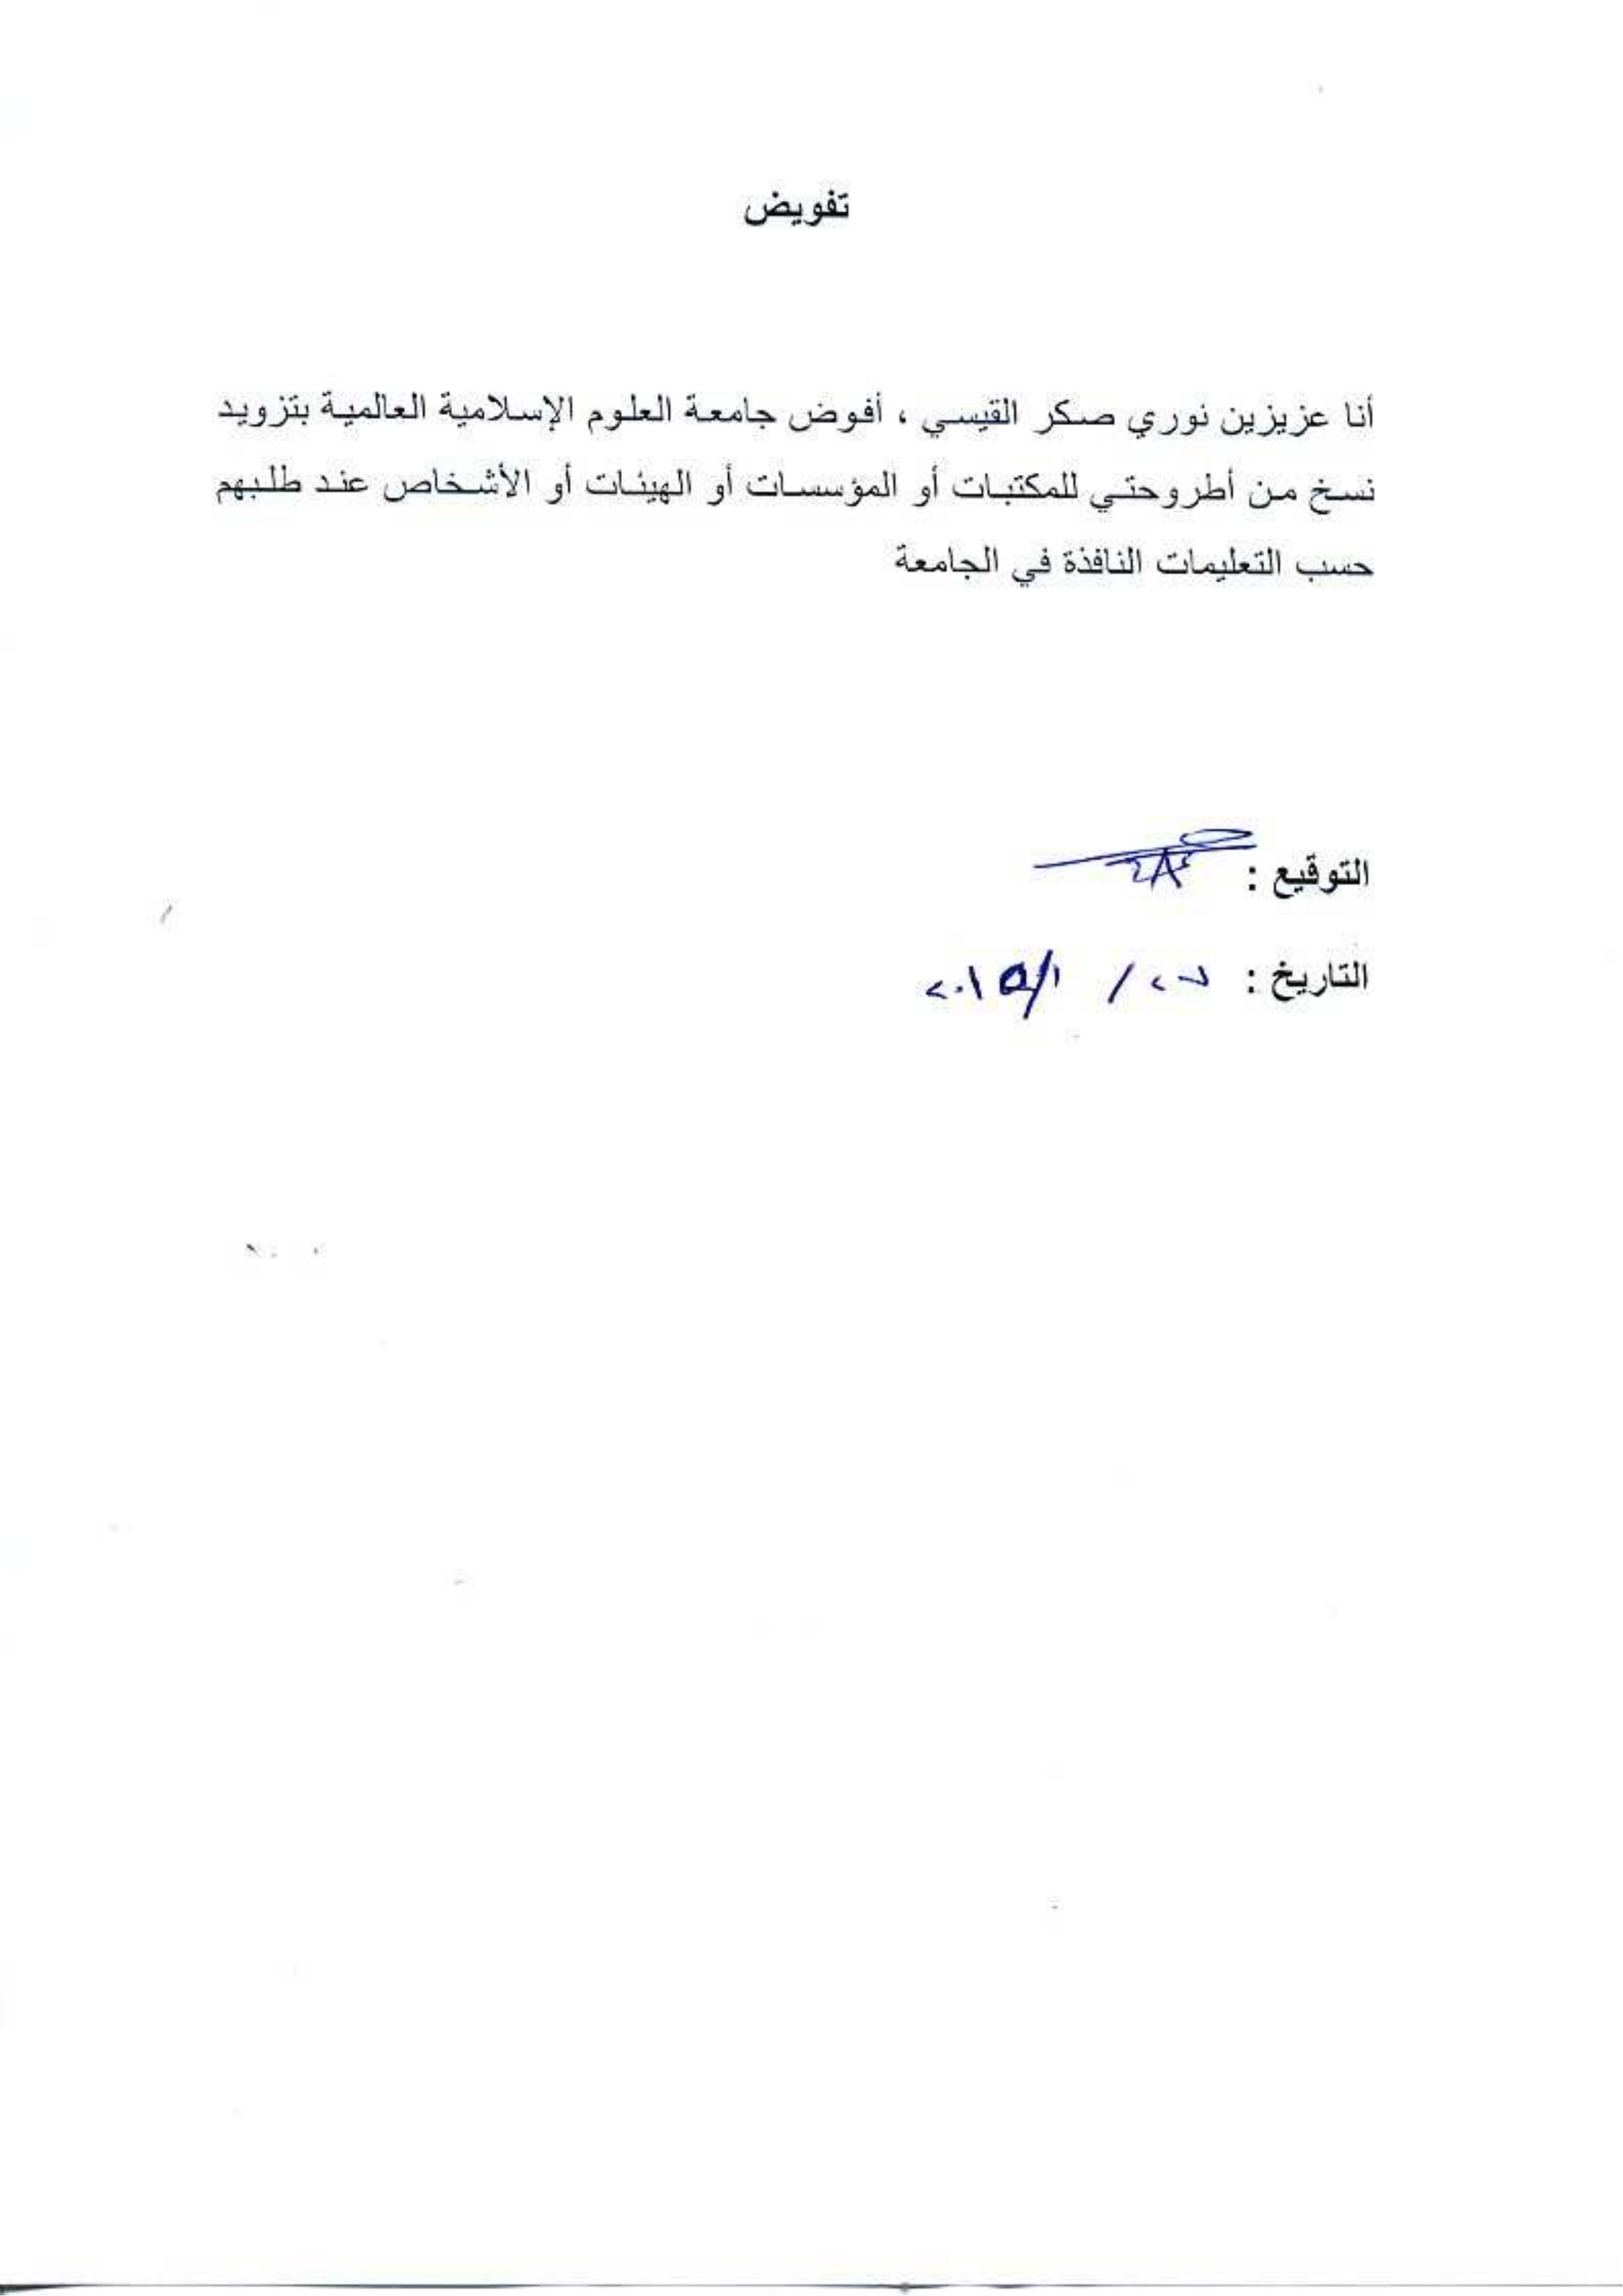 تفويض
أنا عزيزين نوري صكر القيسي ، أفوض جامعة العلوم الإسلامية العالمية بتزويد
نسخ من أطروحتي للمكتبات أو المؤسسات أو الهيئات أو الأشخاص عند طلبهم
حسب التعليمات النافذة في الجامعة
التوقيع :
التاريخ :